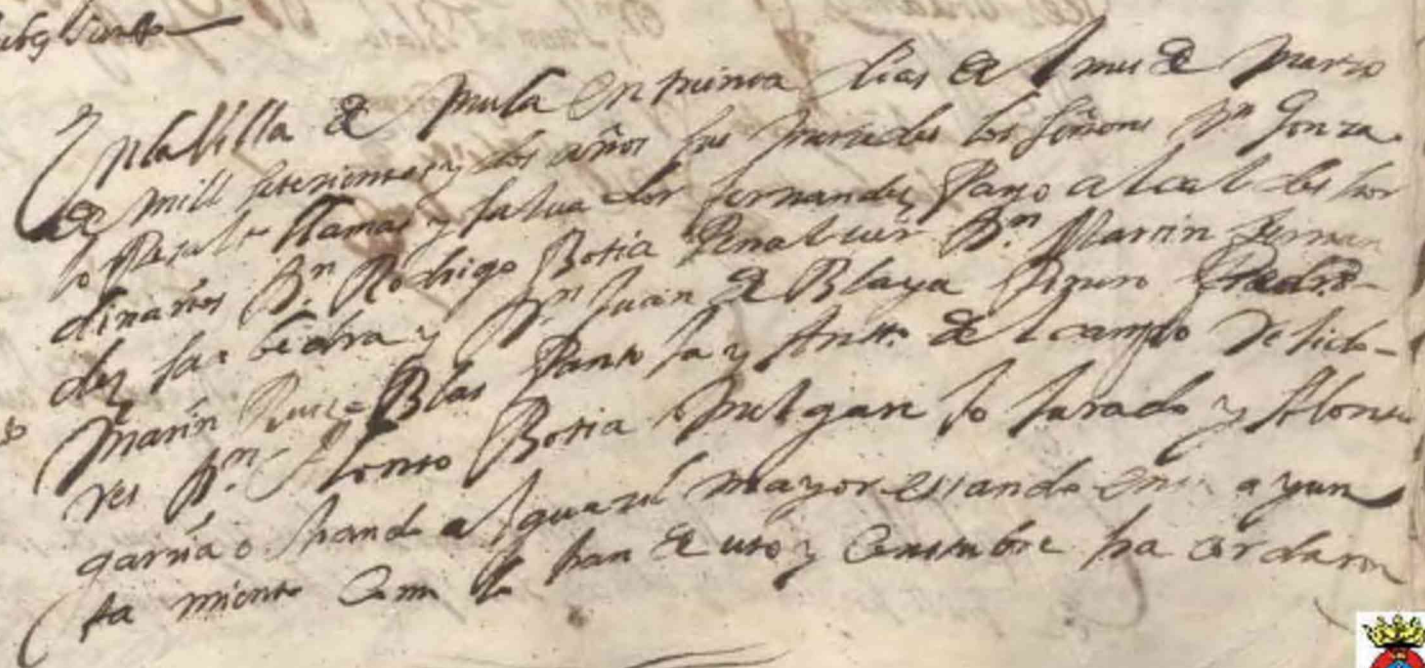 En la Villa de Mula en treinta dias del mes de Marzo
de mill setezientos y dos años sus mercedes los señores Dn Gonza
lo Resalt Llamas y saluador fernandez Payo alcaldes hor
dinarios Dn Rodrigo Botia Penalver Dn Martin fernan
dez saabedra y Dn Juan de Blaya
Marin Ruiz Blas Pantoja y Antto del campo Rejido
res Dn Alonso Botia Melgarejo Jurado y Alonso
garzia obrando alguazil mayor estando en ayun
tamiento Como lo han de uso y Costumbre acordaron